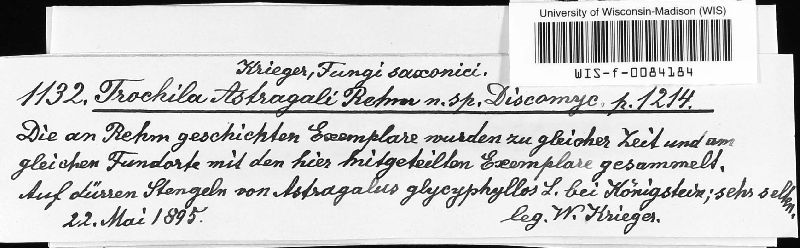 University of Wisconsin-Madison (WIS)
WIS-f-0084184
Krieger, Fungi saxonici.
1132. Trochila Astragali Rehm n. sp. Discomyc. p. 1214.
Die an Rehm geschichten Exemplare wurden zu gleicher Zeit und am
gleichen Fundorte mit den hier mitgeteilten Exemplare gesammelt.
Auf dürren Stengeln von Astragalus glycyphyllos L. bei Königstein; sehr selten.
22. Mai 1895. leg. W. Krieger.